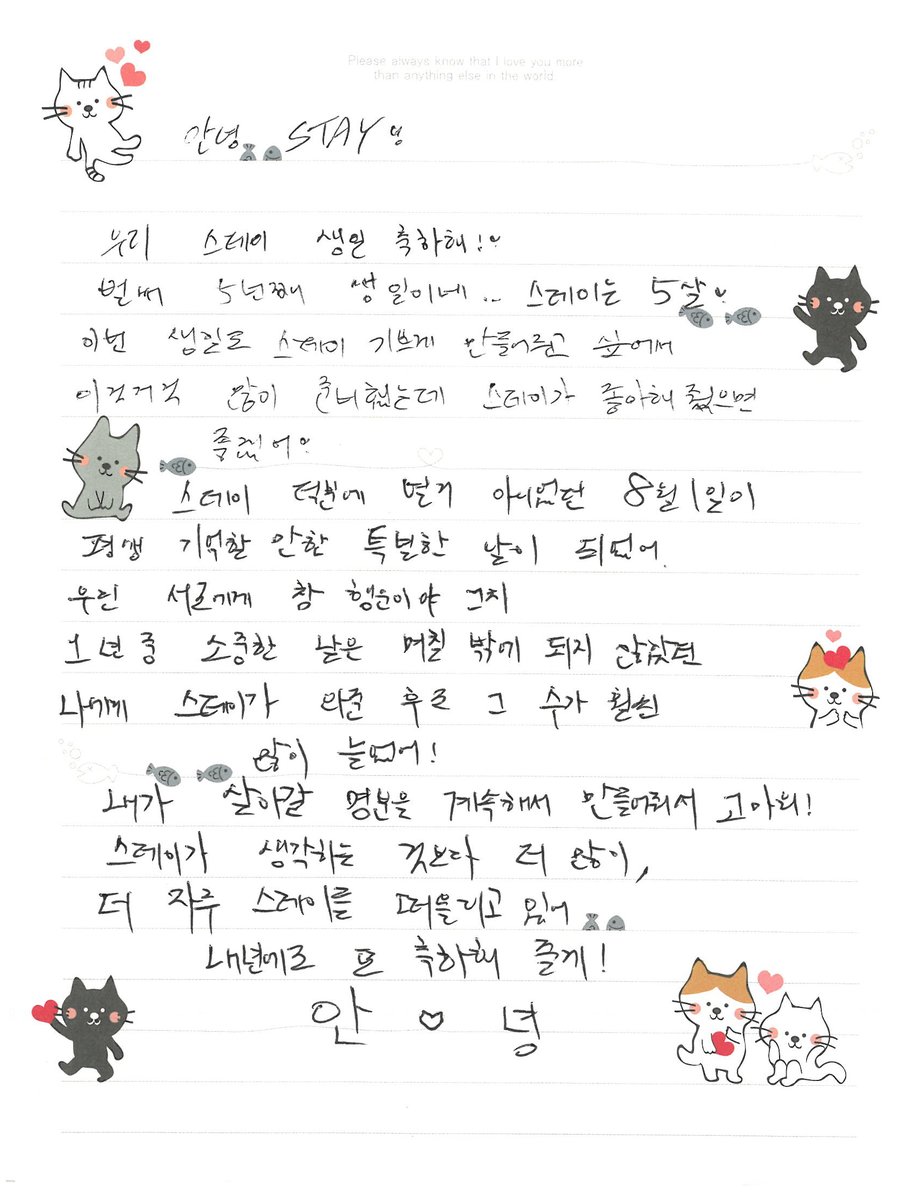 Please always know that I love you more
than anything else in the world.
안녕 STAY
우리 스테이 생일 축하해!
벌써 5년째 생일이네.. 스테이는 5살
이번 생일도 스테이 기쁘게 만들어주고 싶어서
이것저것 많이 준비했는데 스테이가 좋아해줬으면
좋겠어
스테이 덕분에 별거 아니었던 8월 1일이
평생 기억할 만한 특별한 날이 되었어.
우린 서로에게 참 행운이야 그치
1년 중 소중한 날은 며칠 밖에 되지 않았던
나에게 스테이가 와준 후로 그 수가 훨씬
많이 늘었어!
내가 살아갈 명분을 계속해서 만들어줘서 고마워!
스테이가 생각하는 것보다 더 많이,
더 자주 스테이를 떠올리고 있어
내년에도 또 축하해 줄게!
안 ♡ 녕